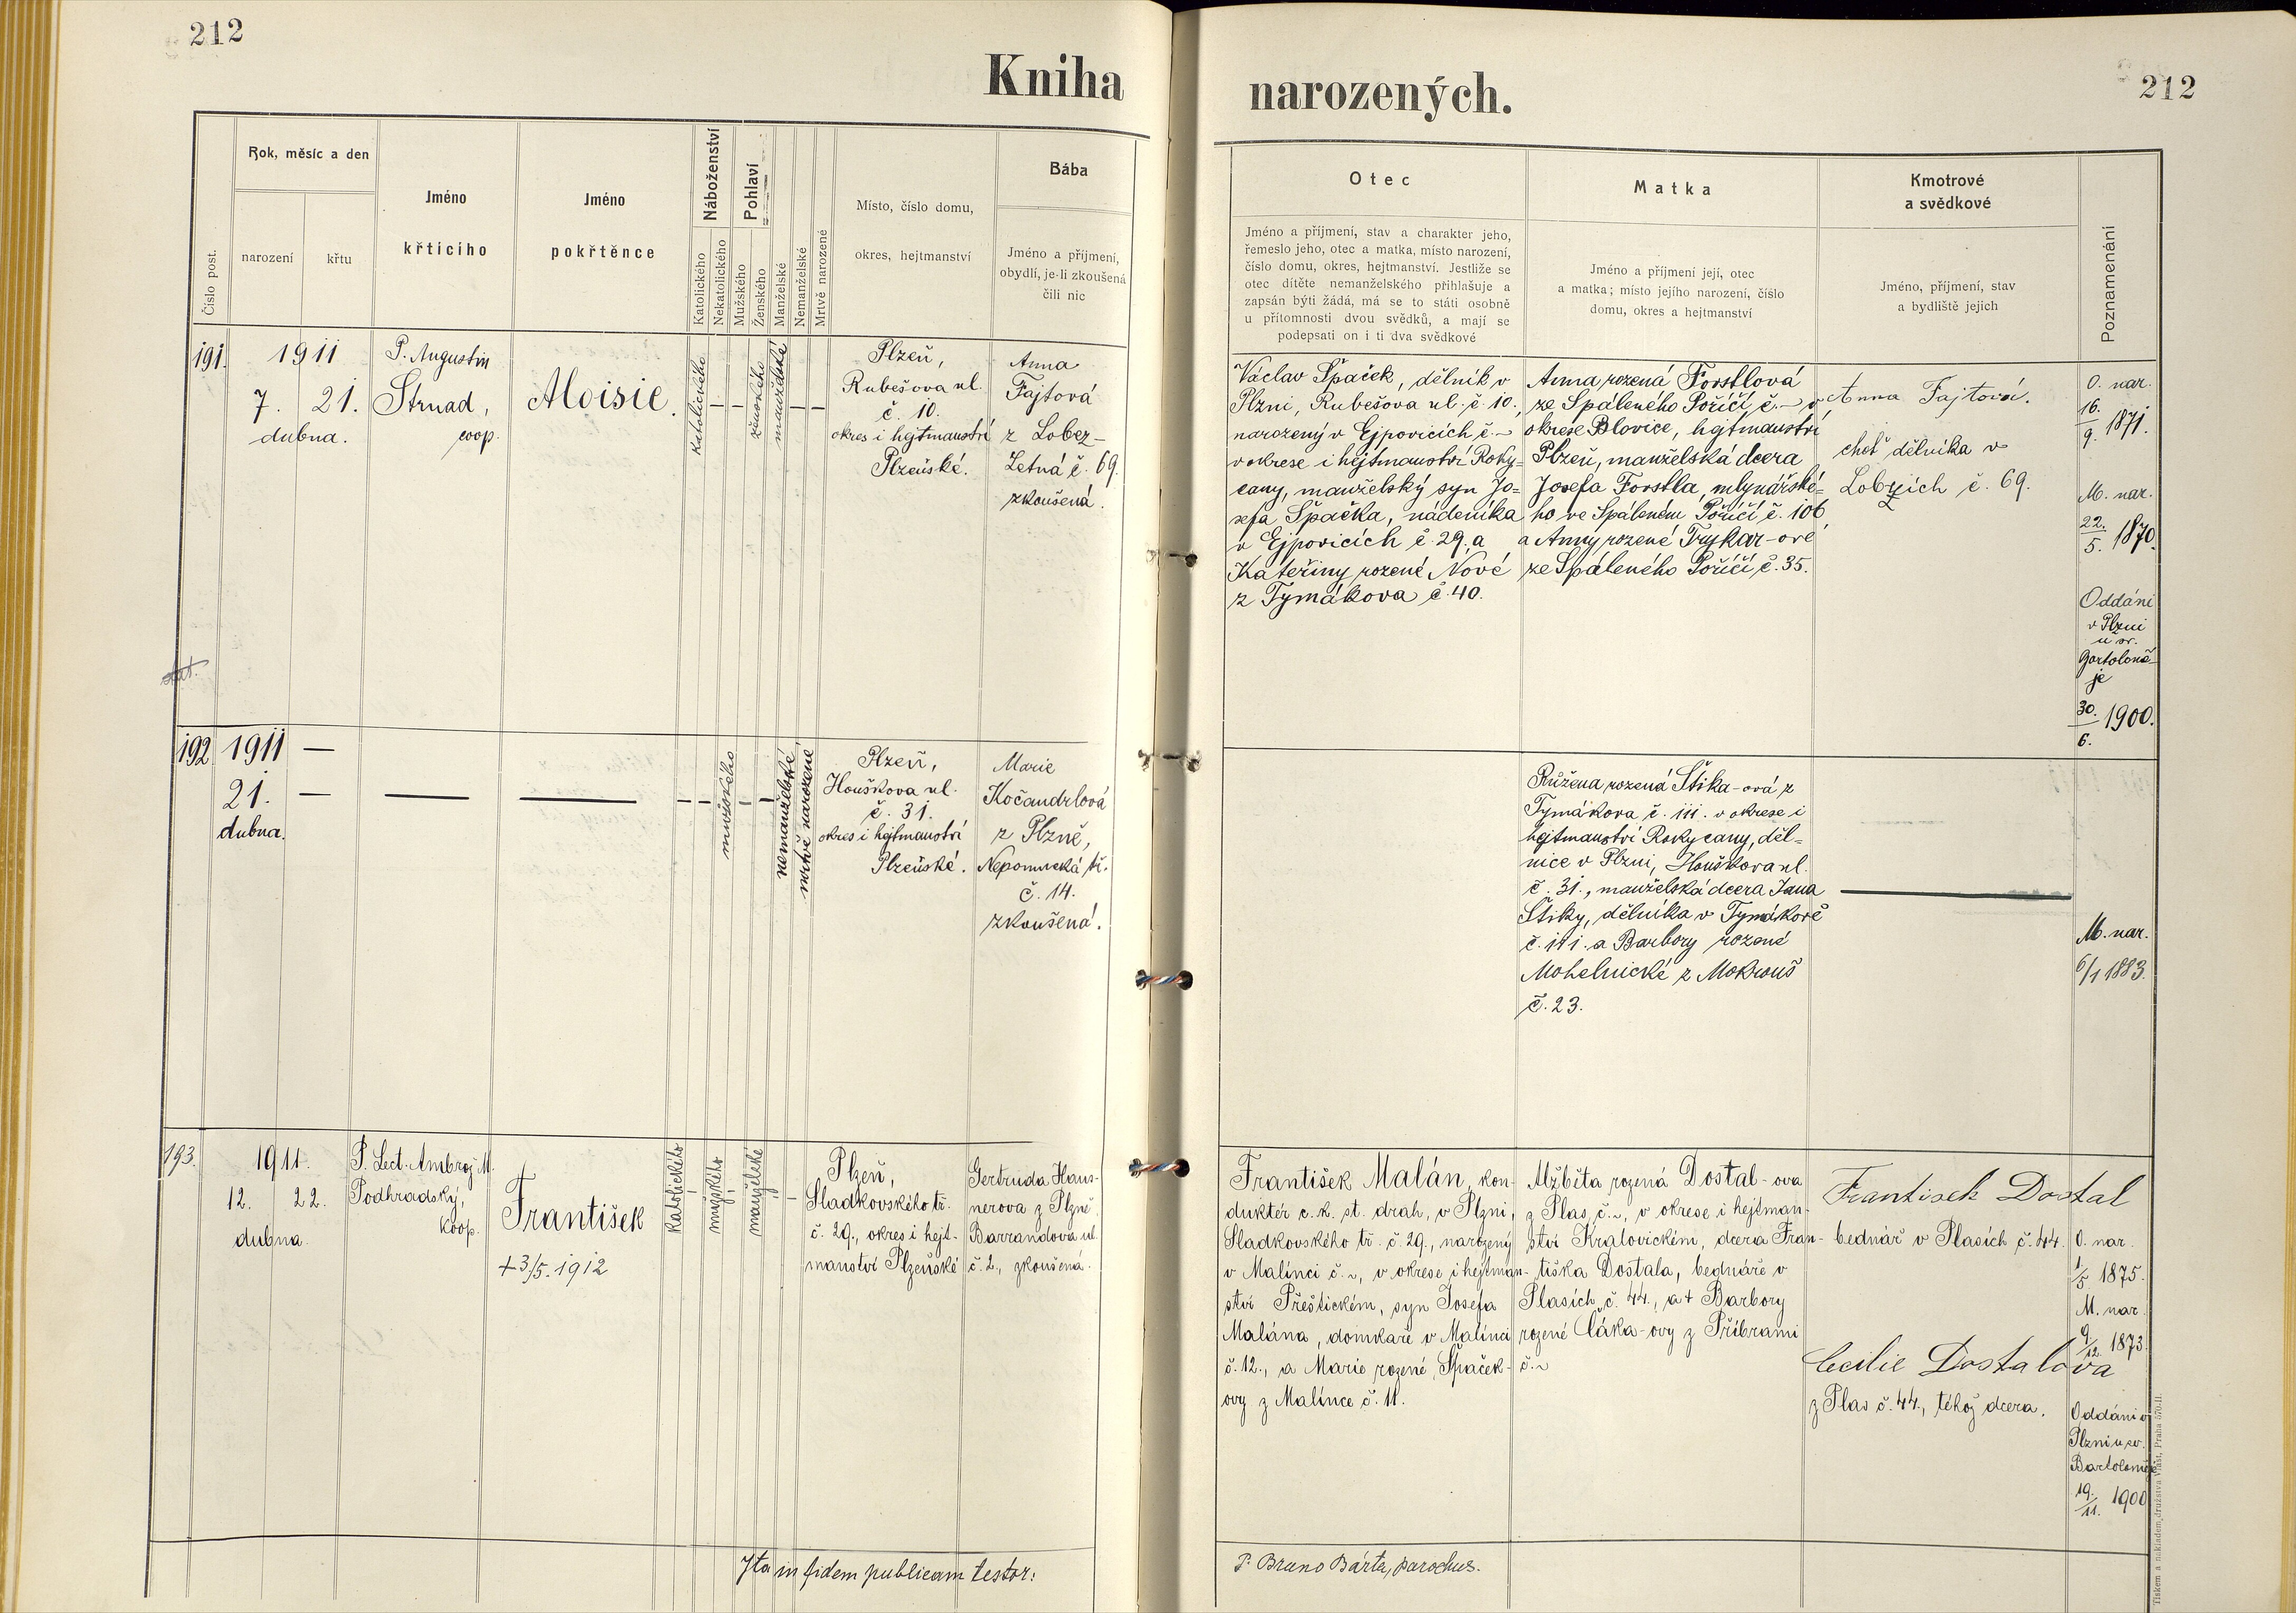 212
Kniha
narozených.
212
Číslo post.
Rok, měsíc a den
narození
křtu
Jméno
křticího
Jméno
pokřtěnce
Náboženství
Katolického
Nekatolického
Pohlaví
Mužského
Ženského
Manželské
Nemanželské
Mrtvě narozené
Místo, číslo domu,
okres, hejtmanství
Bába
Jméno a příjmení,
obydlí, je-li zkoušená
čili nic
Otec
Jméno a příjmení, stav a charakter jeho,
řemeslo jeho, otec a matka, místo narození,
číslo domu, okres, hejtmanství. Jestliže se
otec dítěte nemanželského přihlašuje a
zapsán býti žádá, má se to státi osobně
u přítomnosti dvou svědků, a mají se
podepsati on i ti dva svědkové
Matka
Jméno a příjmení její, otec
a matka; místo jejího narození, číslo
domu, okres a hejtmanství
Kmotrové
a svědkové
Jméno, příjmení, stav
a bydliště jejich
Poznamenání
191.
1911
7. 21.
dubna.
P. Augustin
Strnad,
coop.
Aloisie.
katolického
ženského
manželské
Plzeň,
Rubešova ul.
č. 10.
okres i hejtmanství
Plzeňské.
Anna
Fajtová
z Lobez-
Letná č. 69.
zkoušená.
Václav Špaček, dělník v
Plzni, Rubešova ul. č. 10.,
narozený v Ejpovicích č. ~
v okrese i hejtmanství Roky=
cany, manželský syn Jo=
sefa Špačka, nádeníka
v Ejpovicích č. 29., a
Kateřiny rozené Nové
z Tymákova č. 40.
Anna rozená Forstlová
ze Spáleného Poříčí č. ~ v
okrese Blovice, hejtmanství
Plzeň, manželská dcera
Josefa Forstla, mlynářské=
ho ve Spáleném Poříčí č. 106
a Anny rozené Trykar-ové
ze Spáleného Poříčí č. 35.
Anna Fajtová.
choť dělníka v
Lobzích č. 69.
O. nar.
16.
9. 1871.
M. nar.
22.
5. 1870.
Oddáni
v Plzni
u sv.
Bartoloně-
je
30.
6. 1900.
192
1911 —
21. —
dubna.
mužského
nemanželské
mrtvě narozené
Plzeň,
Houškova ul.
č. 31.
okres i hejtmanství
Plzeňské.
Marie
Kočandrlová
z Plzně,
Nepomucká tř.
č. 14.
zkoušená.
Růžena rozená Štika-ová z
Tymákova č. 111. v okrese i
hejtmanství Rokycany, děl=
nice v Plzni, Houškova ul.
č. 31., manželská dcera Jana
Štiky, dělníka v Tymákově
č. 111. a Barbory rozené
Mohelnické z Mokrouš
č. 23.
M. nar.
6/1 1883.
193.
1911.
12. 22.
dubna.
P. Lect. Ambrož M.
Podhradský,
koop.
František
+3/5. 1912
Katolického
mužského
manželské
Plzeň,
Sladkovského tř.
č. 29., okres i hejt-
manství Plzeňské
Gertruda Haus-
nerova z Plzně,
Barrandova ul.
č. 2., zkoušená.
František Malán, kon-
duktér c. k. st. drah, v Plzni,
Sladkovského tř. č. 29., narozený
v Malínci č. ~, v okrese i hejtman-
ství Přeštickém, syn Josefa
Malána, domkaře v Malínci
č. 12., a Marie rozené Špaček-
ovy z Malínce č. 11.
Alžběta rozená Dostal-ova
z Plas č. ~, v okrese i hejtman-
ství Kralovickém, dcera Fran-
tiška Dostala, bednáře v
Plasích č. 44., a + Barbory
rozené Cáka-ovy z Příbrami
č. ~
František Dostal
bednář v Plasích č. 44.
Cecilie Dostalova
z Plas č. 44., téhož dcera.
O. nar.
1/5 1875.
M. nar.
9/12. 1873.
Oddáni v
Plzni u sv.
Bartoloměje
19.
11. 1900
Ita in fidem publicam testor:
P. Bruno Bárta, parochus.
Tiskem a nákladem družstva Vlast, Praha 570-II.